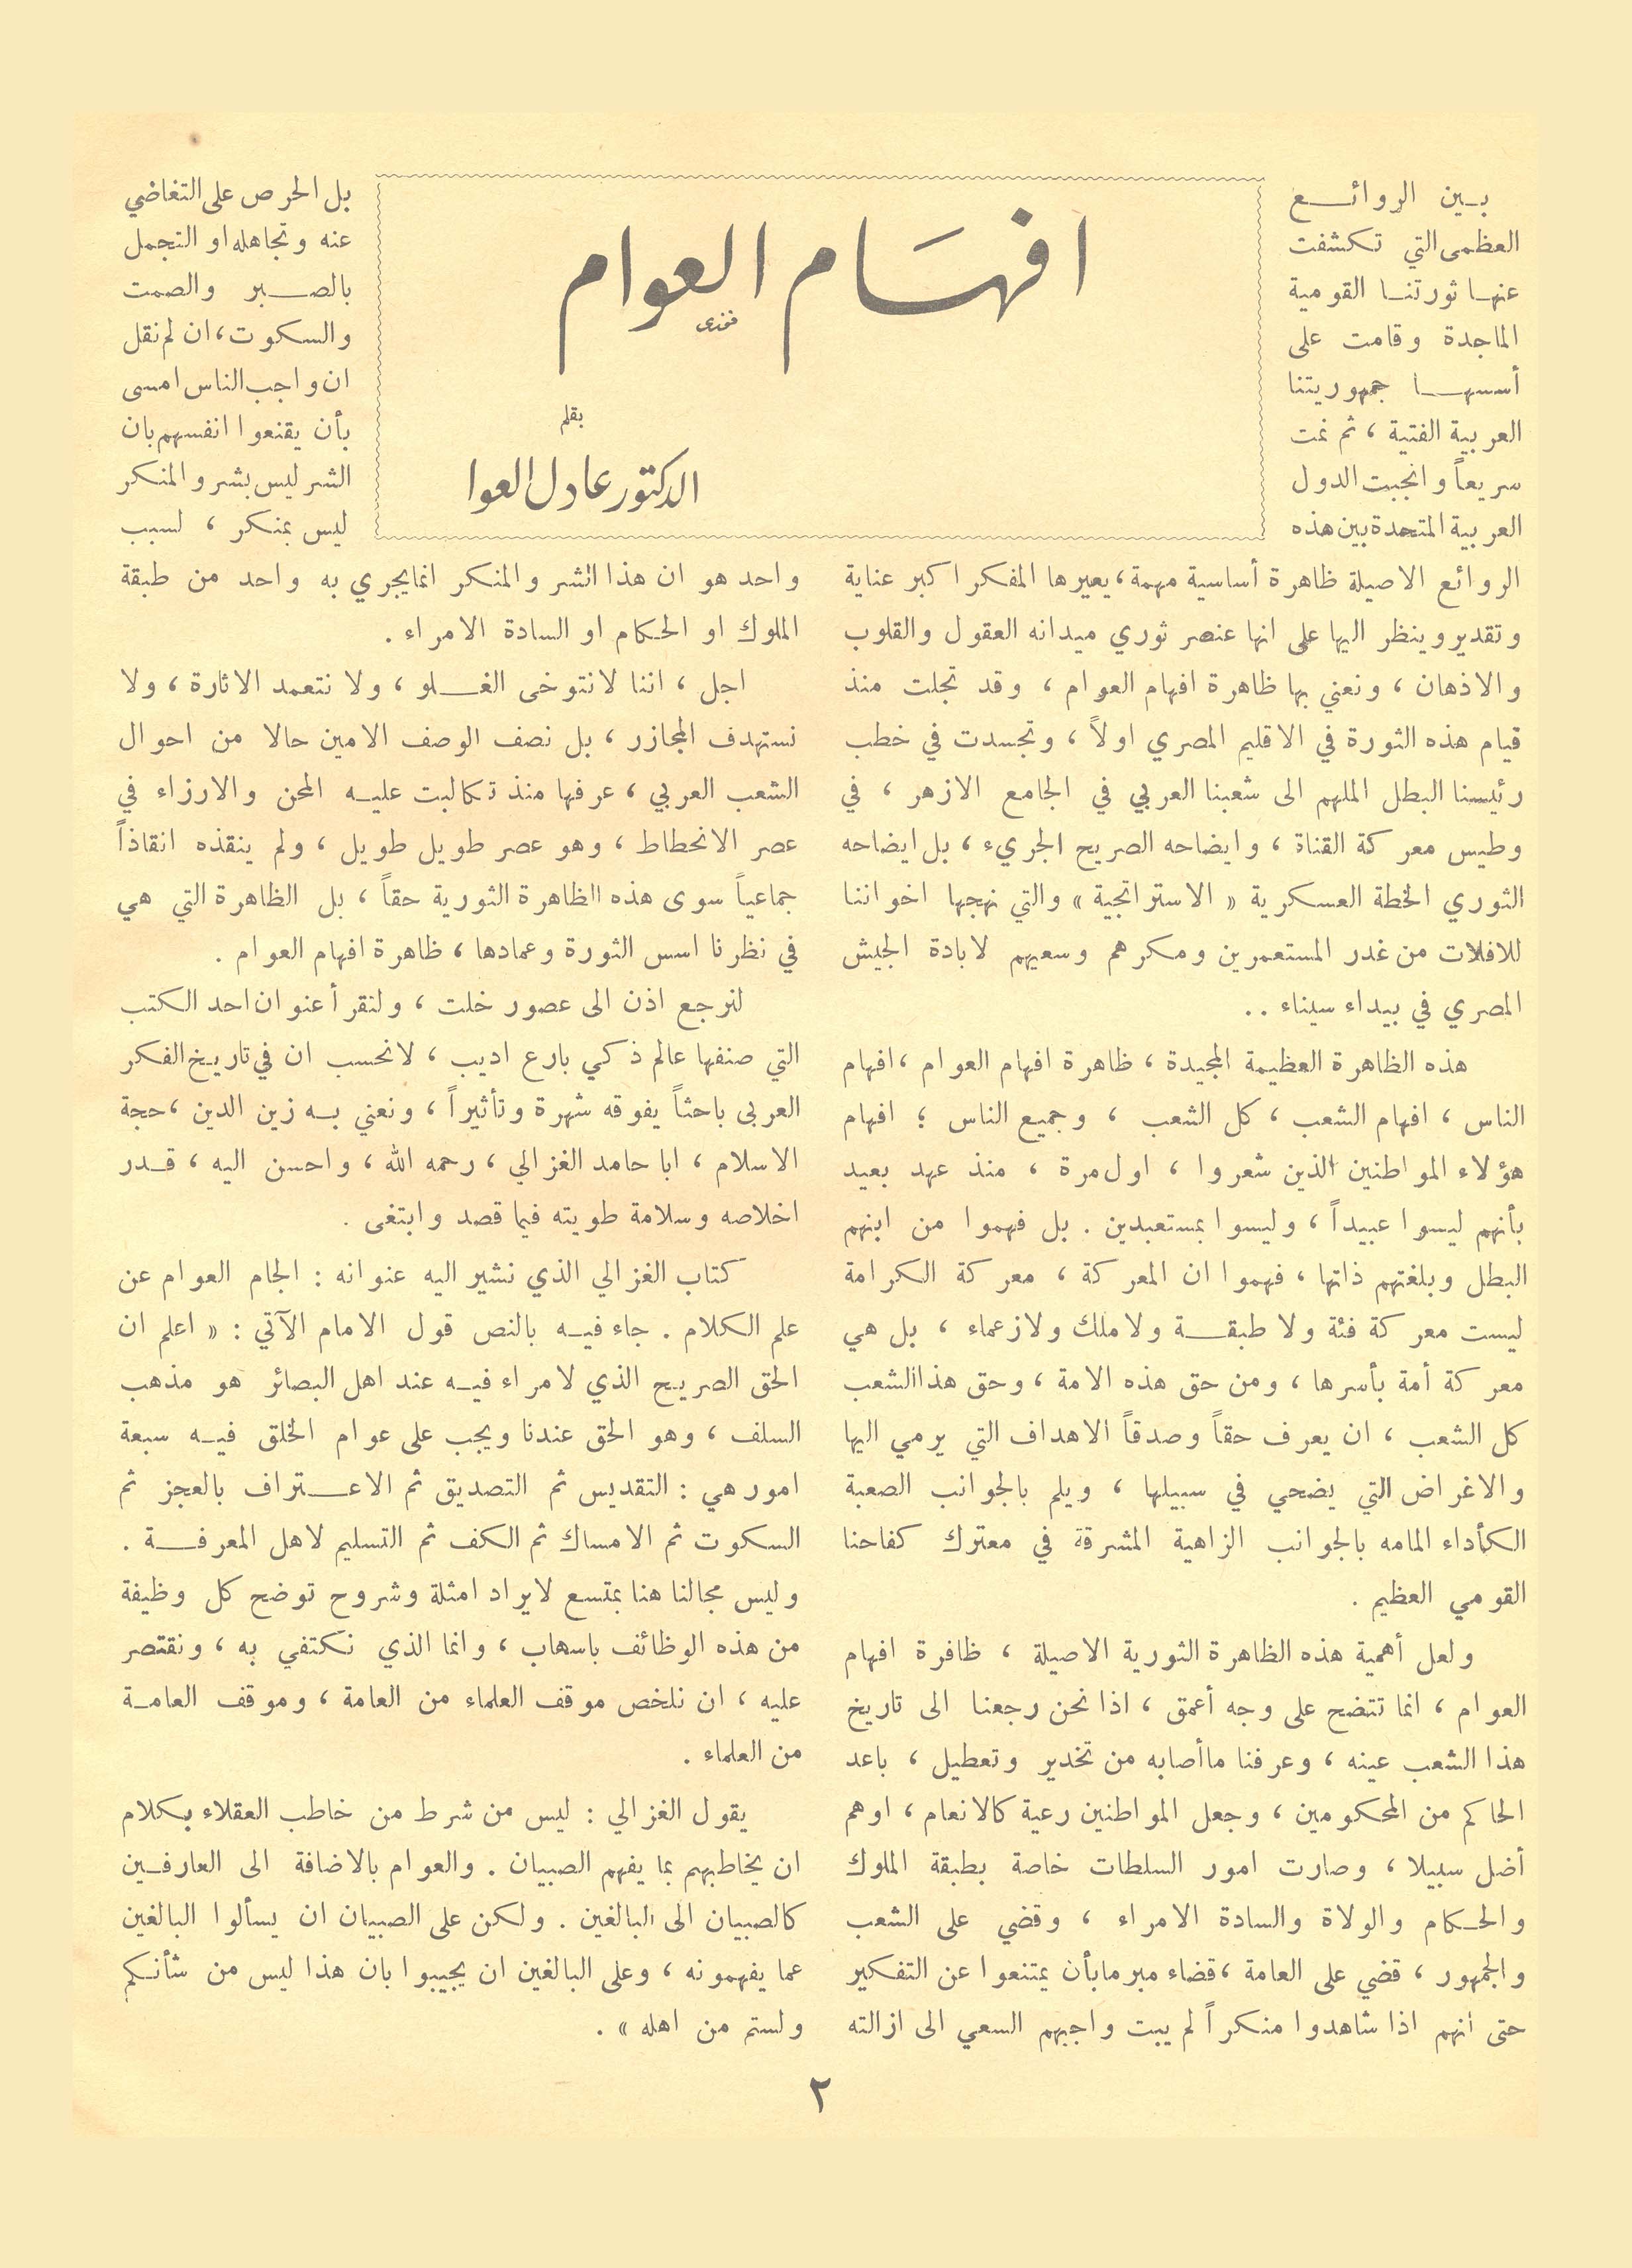 افهام العوام
فخزي
بقلم
الدكتور عادل العوا
بين الروائع
العظمى التي تكشفت
عنها ثورتنا القومية
الماجدة وقامت على
أسسها جمهوريتنا
العربية الفتية ، ثم نمت
سريعاً وانجبت الدول
العربية المتحدة بين هذه
الروائع الاصيلة ظاهرة أساسية مهمة ، يعيرها المفكر اكبر عناية
وتقدير وينظر اليها على انها عنصر ثوري ميدانه العقول والقلوب
والاذهان ، ونعني بها ظاهرة افهام العوام ، وقد تجلت منذ
قيام هذه الثورة في الاقليم المصري اولاً ، وتجسدت في خطب
رئيسنا البطل الملهم الى شعبنا العربي في الجامع الازهر ، في
وطيس معركة القناة ، وايضاحه الصريح الجريء ، بل ايضاحه
الثوري الخطة العسكرية « الاستراتجية » والتي نهجها اخواننا
للافلات من غدر المستعمرين ومكرهم وسعيهم لابادة الجيش
المصري في بيداء سيناء . .
هذه الظاهرة العظيمة المجيدة ، ظاهرة افهام العوام ، افهام
الناس ، افهام الشعب ، كل الشعب ، وجميع الناس ؛ افهام
هؤلاء المواطنين الذين شعروا ، اول مرة ، منذ عهد بعيد
بأنهم ليسوا عبيداً ، وليسوا بمستعبدين . بل فهموا من ابنهم
البطل وبلغتهم ذاتها ، فهموا ان المعركة ، معركة الكرامة
ليست معركة فئة ولا طبقة ولا ملك ولا زعماء ، بل هي
معركة أمة بأسرها ، ومن حق هذه الامة ، وحق هذا الشعب
كل الشعب ، ان يعرف حقاً وصدقاً الاهداف التي يرمي اليها
والاغراض التي يضحي في سبيلها ، ويلم بالجوانب الصعبة
الكأداء المامه بالجوانب الزاهية المشرقة في معترك كفاحنا
القومي العظيم .
ولعل أهمية هذه الظاهرة الثورية الاصيلة ، ظافرة افهام
العوام ، انما تتضح على وجه أعمق ، اذا نحن رجعنا الى تاريخ
هذا الشعب عينه ، وعرفنا ما أصابه من تخدير وتعطيل ، باعد
الحاكم من المحكومين ، وجعل المواطنين رعية كالانعام ، او هم
أضل سبيلا ، وصارت امور السلطات خاصة بطبقة الملوك
والحكام والولاة والسادة الامراء ، وقضي على الشعب
والجمهور ، قضي على العامة ، قضاء مبرما بأن يمتنعوا عن التفكير
حتى انهم اذا شاهدوا منكراً لم يبت واجبهم السعي الى ازالته
بل الحرص على التغاضي
عنه وتجاهله او التجمل
بالصبر والصمت
والسكوت ، ان لم نقل
ان واجب الناس امسى
بأن يقنعوا انفسهم بان
الشر ليس بشر والمنكر
ليس بمنكر ، لسبب
واحد هو ان هذا الشر والمنكر انما يجري به واحد من طبقة
الملوك او الحكام او السادة الامراء .
اجل ، اننا لا نتوخى الغلو ، ولا نتعمد الاثارة ، ولا
نستهدف المجازر ، بل نصف الوصف الامين حالا من احوال
الشعب العربي ، عرفها منذ تكالبت عليه المحن والارزاء في
عصر الانحطاط ، وهو عصر طويل طويل ، ولم ينقذه انقاذاً
جماعياً سوى هذه الظاهرة الثورية حقاً ، بل الظاهرة التي هي
في نظرنا اسس الثورة وعمادها ، ظاهرة افهام العوام .
لنرجع اذن الى عصور خلت ، ولنقرأ عنوان احد الكتب
التي صنفها عالم ذكي بارع اديب ، لا نحسب ان في تاريخ الفكر
العربى باحثاً يفوقه شهرة وتأثيراً ، ونعني به زين الدين ، حجة
الاسلام ، ابا حامد الغزالي ، رحمه الله ، واحسن اليه ، قدر
اخلاصه وسلامة طويته فيما قصد وابتغى .
كتاب الغزالي الذي نشير اليه عنوانه : الجام العوام عن
علم الكلام . جاء فيه بالنص قول الامام الآتي : « اعلم ان
الحق الصريح الذي لا مراء فيه عند اهل البصائر هو مذهب
السلف ، وهو الحق عندنا ويجب على عوام الخلق فيه سبعة
امور هي : التقديس ثم التصديق ثم الاعتراف بالعجز ثم
السكوت ثم الامساك ثم الكف ثم التسليم لاهل المعرفة .
وليس مجالنا هنا بمتسع لايراد امثلة وشروح توضح كل وظيفة
من هذه الوظائف باسهاب ، وانما الذي نكتفي به ، ونقتصر
عليه ، ان نلخص موقف العلماء من العامة ، وموقف العامة
من العلماء .
يقول الغزالي : ليس من شرط من خاطب العقلاء بكلام
ان يخاطبهم بما يفهم الصبيان . والعوام بالاضافة الى العارفين
كالصبيان الى البالغين . ولكن على الصبيان ان يسألوا البالغين
عما يفهمونه ، وعلى البالغين ان يجيبوا بان هذا ليس من شأنكم
ولستم من اهله » .
٢